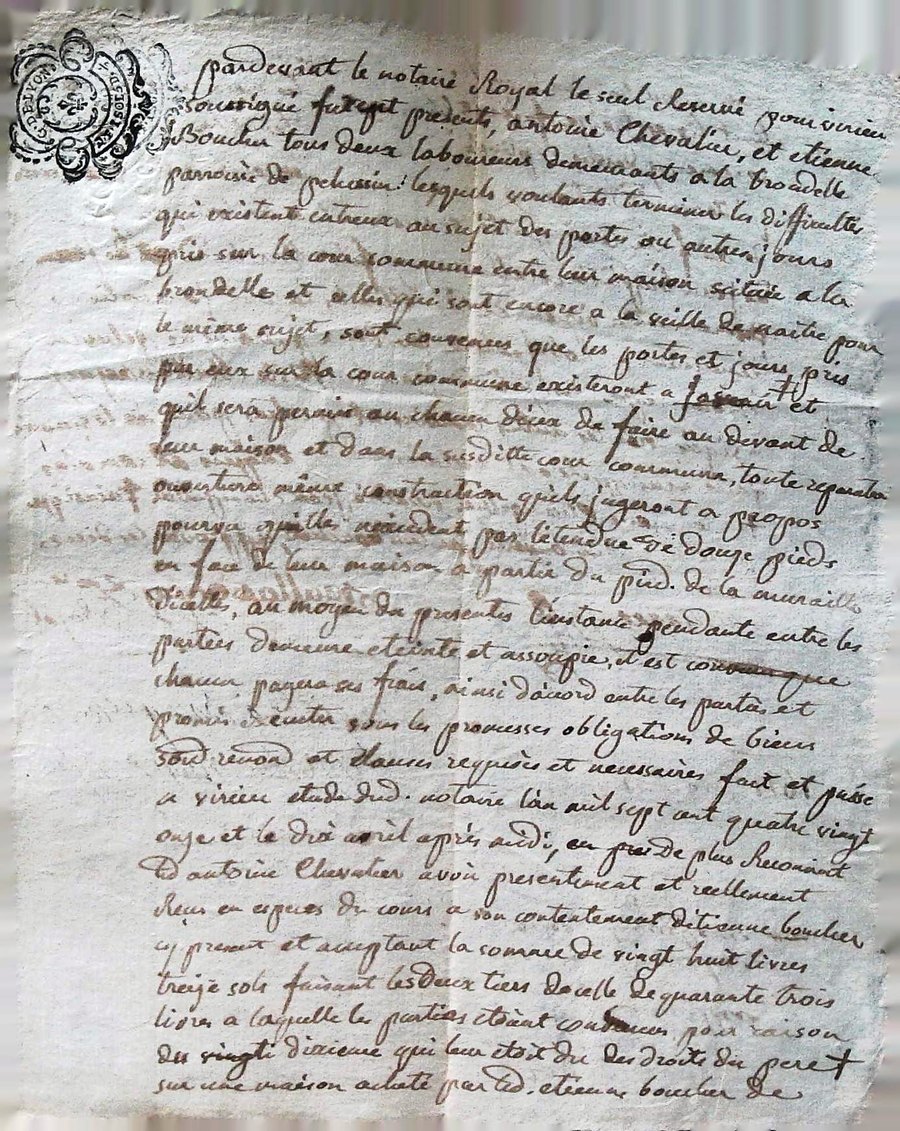 G. DE LYON
pardevant le notaire Royal le seul Reservé pour virieu
soussigné furent presents, antoine Chevalier, et etienne
Boucher tous deux laboureurs demeurants a la brondelle
parroisse de pelussin: lesquels voulants terminer les difficultés
qui existent entreux au sujet des portes ou autres jours
pris sur la cour commune entre leur maison scituée a la
brondelle et celles qui sont encore a la veille de naitre pour
le même sujet, sont convenues que les portes et jours pris
par eux sur la cour commune existeront a jamais et
quil sera permis au chacun d'eux de faire au devant de
leur maison et dans la susditte cour commune, toute reparation
ouverture même construction quils jugeront a propos
pourvu quelle n'excedent pas letendue de douze pieds
en face de leur maison a partir du pied de la muraille
dicelles, au moyen du presentes l'instance pendante entre les
parties demeure eteinte et assoupie, et est convenu que
chacun payera ses frais, ainsi dacord entre les parties et
promis executer sous les promesses obligations de biens
soud renond et clauses requises et necessaires fait et passé
a virieu etude dud. notaire l'an mil sept cent quatre vingt
onze et le dix avril après midi, en pres de plus Reconnoit
led antoine Chevalier avoir presentement et reellement
Reçu en especes du cours a son contentement détienne boucher
cy present et acceptant la somme de vingt huit livres
treize sols faisant les deux tiers de celle de quarante trois
livres a laquelle les parties etoient convenues pour raison
des vingti dixieme qui leur etoit du des droits du pere +
sur une maison acheté par led. etienne boucher de